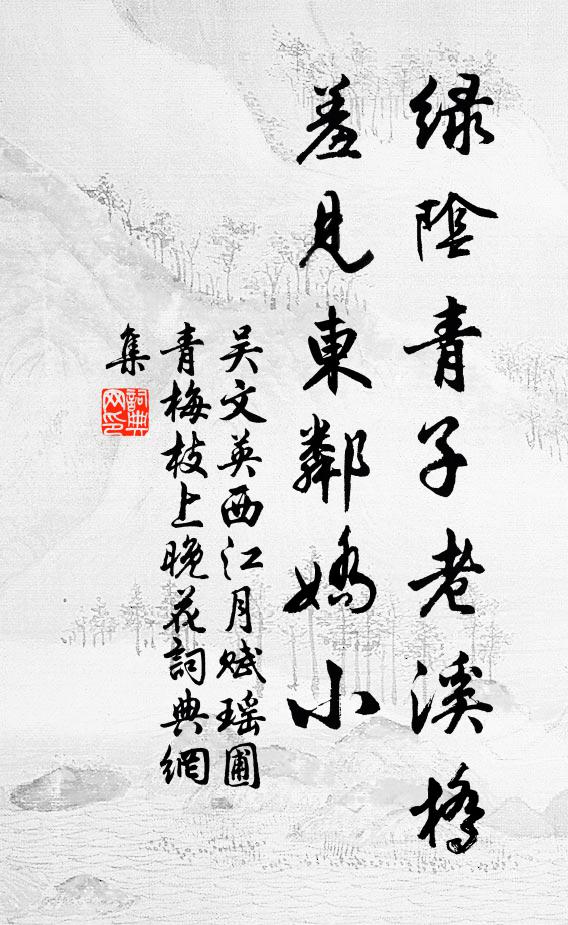 綠陰青子老溪橋
羞見東鄰嬌小
吴文英西江月賦瑶圃
青梅枝上晚花詞典網
集
詞典
网印